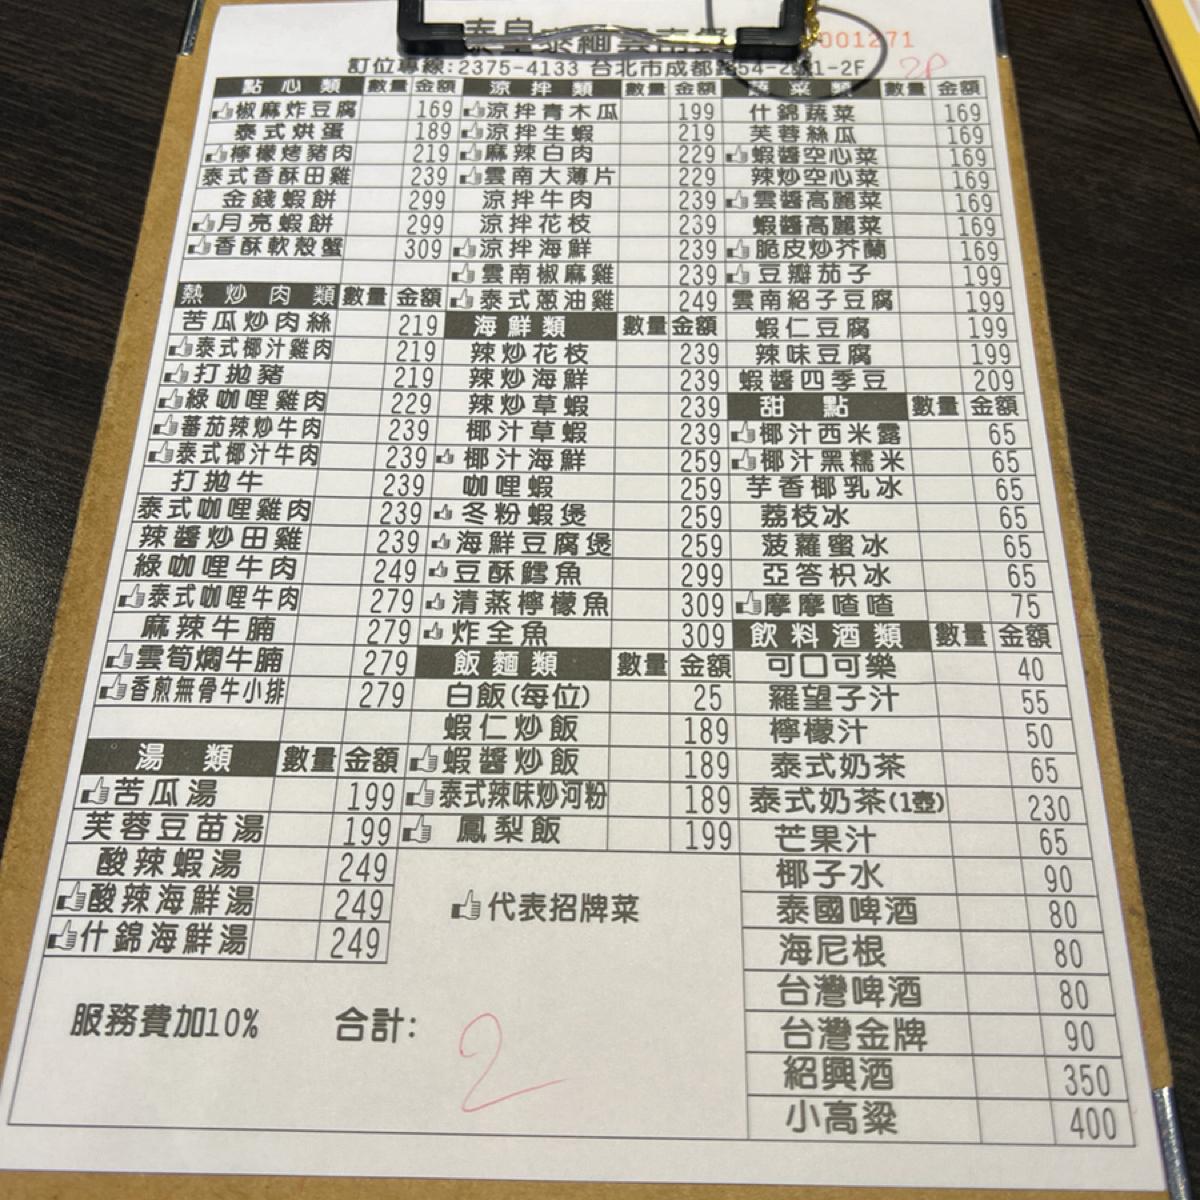 泰皇泰緬雲南餐
001271
訂位專線:2375-4133 台北市成都路54-2號1-2F
2P
點心類 數量 金額
👍椒麻炸豆腐 169
泰式烘蛋 189
👍檸檬烤豬肉 219
泰式香酥田雞 239
金錢蝦餅 299
👍月亮蝦餅 299
👍香酥軟殼蟹 309
熱炒肉類 數量 金額
苦瓜炒肉絲 219
👍泰式椰汁雞肉 219
👍打拋豬 219
👍綠咖哩雞肉 229
👍蕃茄辣炒牛肉 239
👍泰式椰汁牛肉 239
打拋牛 239
泰式咖哩雞肉 239
辣醬炒田雞 239
綠咖哩牛肉 249
👍泰式咖哩牛肉 279
麻辣牛腩 279
👍雲筍燜牛腩 279
👍香煎無骨牛小排 279
湯類 數量 金額
👍苦瓜湯 199
芙蓉豆苗湯 199
酸辣蝦湯 249
👍酸辣海鮮湯 249
👍什錦海鮮湯 249
涼拌類 數量 金額
👍涼拌青木瓜 199
👍涼拌生蝦 219
👍麻辣白肉 229
👍雲南大薄片 229
涼拌牛肉 239
涼拌花枝 239
👍涼拌海鮮 239
👍雲南椒麻雞 239
👍泰式蔥油雞 249
海鮮類 數量 金額
辣炒花枝 239
辣炒海鮮 239
辣炒草蝦 239
椰汁草蝦 239
👍椰汁海鮮 259
咖哩蝦 259
👍冬粉蝦煲 259
👍海鮮豆腐煲 259
👍豆酥鱈魚 299
👍清蒸檸檬魚 309
👍炸全魚 309
飯麵類 數量 金額
白飯(每位) 25
蝦仁炒飯 189
👍蝦醬炒飯 189
👍泰式辣味炒河粉 189
👍鳳梨飯 199
👍代表招牌菜
蔬菜類 數量 金額
什錦蔬菜 169
芙蓉絲瓜 169
👍蝦醬空心菜 169
辣炒空心菜 169
👍雲醬高麗菜 169
蝦醬高麗菜 169
👍脆皮炒芥蘭 169
👍豆瓣茄子 199
雲南紹子豆腐 199
蝦仁豆腐 199
辣味豆腐 199
蝦醬四季豆 209
甜點 數量 金額
👍椰汁西米露 65
👍椰汁黑糯米 65
芋香椰乳冰 65
荔枝冰 65
菠蘿蜜冰 65
亞答枳冰 65
👍摩摩喳喳 75
飲料酒類 數量 金額
可口可樂 40
羅望子汁 55
檸檬汁 50
泰式奶茶 65
泰式奶茶(1壺) 230
芒果汁 65
椰子水 90
泰國啤酒 80
海尼根 80
台灣啤酒 80
台灣金牌 90
紹興酒 350
小高粱 400
服務費加10% 合計: 2